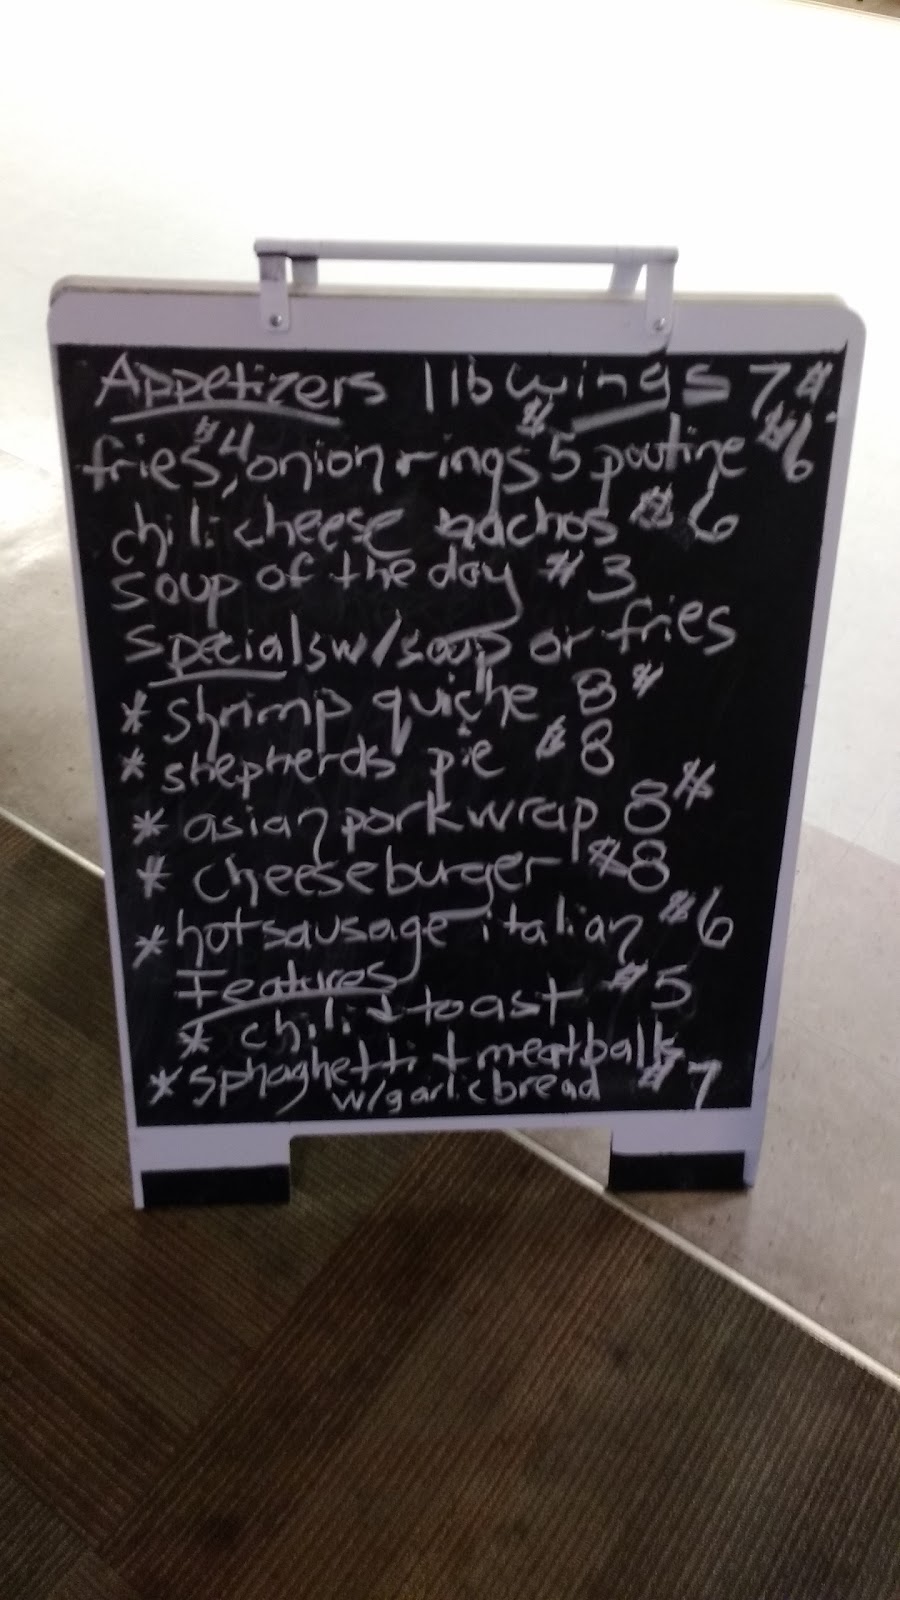 Appetizers 1 lb wings 7$
fries $4, onion rings $5 poutine $6
chili cheese nachos $6
soup of the day $3
Specials w/soup or fries
* shrimp quiche 8$
* shepherds pie $8
* asian pork wrap 8$
* cheese burger $8
* hot sausage italian $6
Features
* chili + toast $5
* sphaghetti + meatballs
w/garlic bread $7